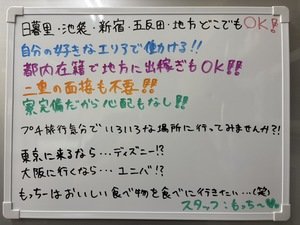 日暮里・池袋・新宿・五反田・地方どこでもOK!!
自分の好きなエリアで働ける!!
都内在籍で地方に出稼ぎもOK!!
二重の面接も不要!!
寮完備だから心配もなし!!
プチ旅行気分でいろいろな場所に行ってみませんか?!
東京に来るなら…ディズニー!?
大阪に行くなら…ユニバ!?
もっちーはおいしい食べ物を食べに行きたい…(笑)
スタッフ:もっち〜♥♥